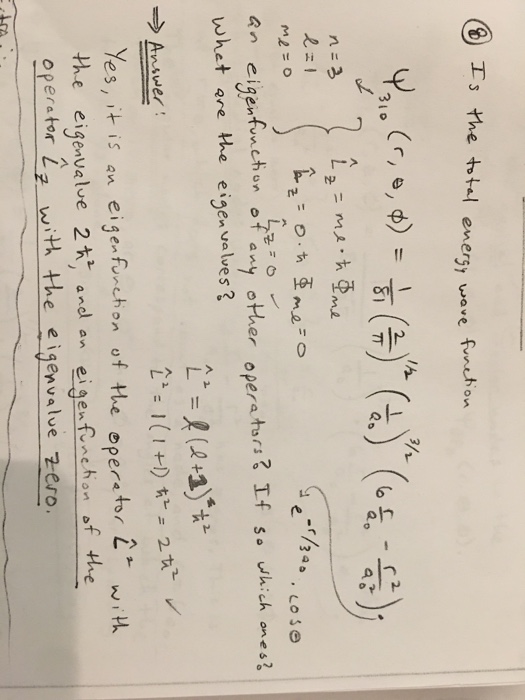 ⑧ Is the total energy wave function
Ψ₃₁₀ (r, θ, φ) = 1/81 (2/π)^1/2 (1/a₀)^3/2 (6 r/a₀ - r²/a₀²);
e^-r/3a₀ . cos θ
n = 3
l = 1
mℓ = 0
L̂z = mℓ · ħ Φmℓ
L̂z = 0 · ħ Φmℓ = 0
L̂z = 0 ✓
an eigenfunction of any other operators? If so which ones?
What are the eigenvalues?
L̂² = l(l+1)ħ²
L̂² = 1(1+1)ħ² = 2ħ² ✓
⇒ Answer:
Yes, it is an eigenfunction of the operator L̂² with
the eigenvalue 2ħ², and an eigenfunction of the
operator L̂z with the eigenvalue zero.